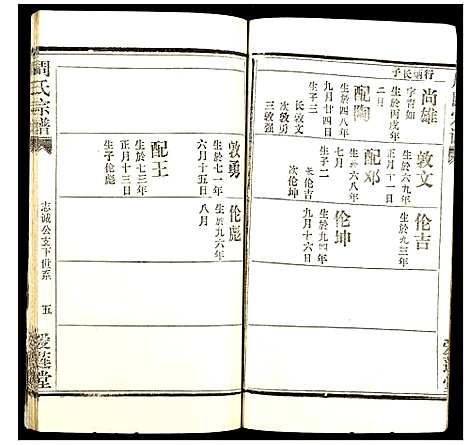 行炳长子
尚雄
字育如
生於丙戌年
二月
配陶
生於四八年
九月廿四日
生子三
长敦文
次敦勇
三敦强
敦文
生於六九年
正月十一日
配邓
生於六八年
七月
生子二
长伦吉
次伦坤
伦吉
生於九三年
伦坤
生於九四年
九月十六日
周氏宗谱
志诚公支下世系
五
爱莲堂
敦勇
生於七一年
六月十五日
配王
生於七三年
正月十三日
生子伦彪
伦彪
生於九六年
八月